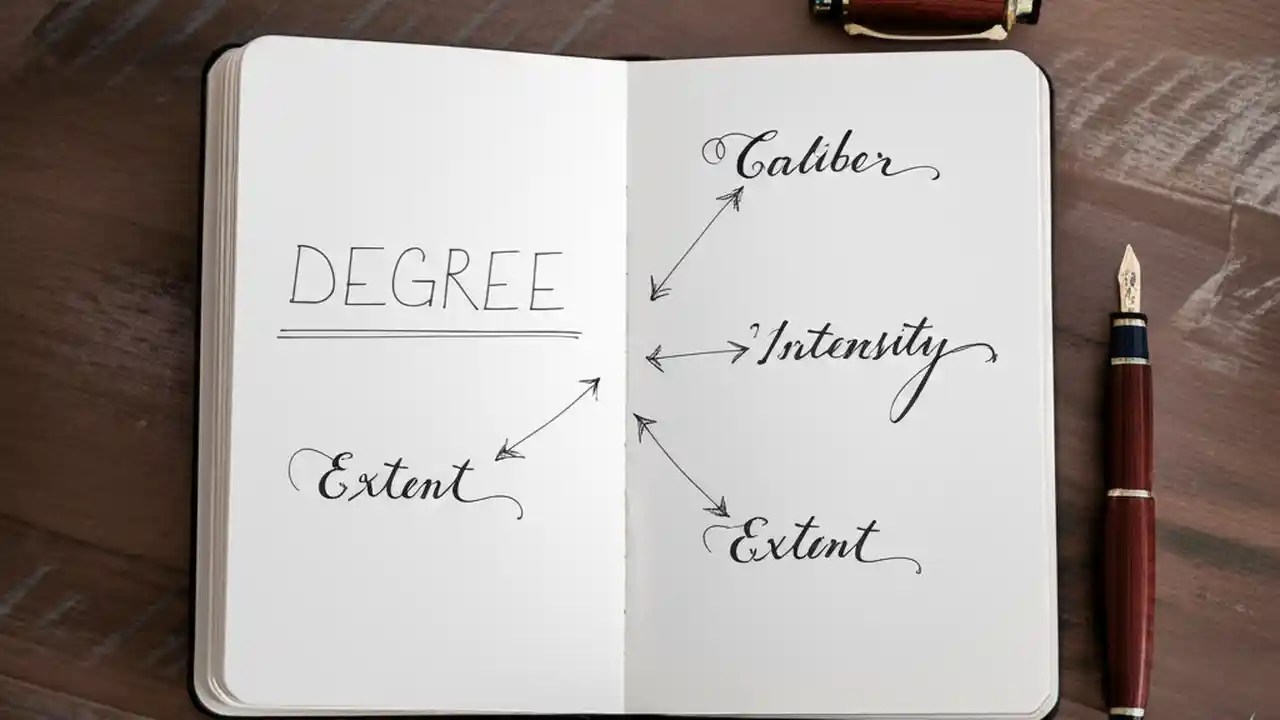 DEGREE
Extent
Caliber
Intensity
Extent